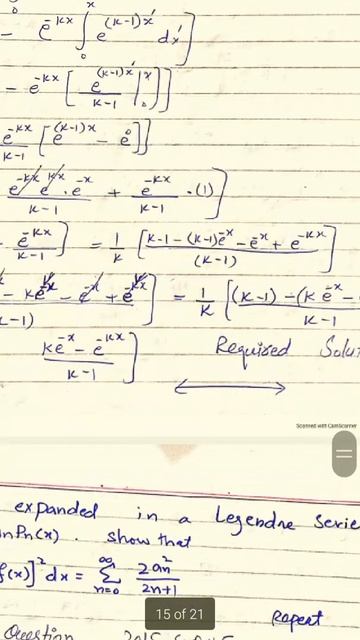 - e^{-kx} ∫_0^x e^{(k-1)x'} dx' ]
- e^{-kx} [ e^{(k-1)x'}/(k-1) |_0^x ] ]
e^{-kx}/(k-1) [ e^{(k-1)x} - e^0 ] ]
e^{-kx} e^{kx} · e^{-x}/(k-1) + e^{-kx}/(k-1) · (1) ]
- e^{-kx}/(k-1) ] = 1/k [ (k-1-(k-1)e^{-x} - e^{-x} + e^{-kx})/(k-1) ]
= 1/k [ (k-1) - (k e^{-x} - / k-1
(ke^{-x} - e^{-kx})/(k-1) ] Required Solu
Scanned with CamScanner
expanded in a Legendre Serie
Pn(x) . show that
f(x)]^2 dx = ∑_{n=0}^∞ 2an^2/(2n+1)
15 of 21
Repeat
Question